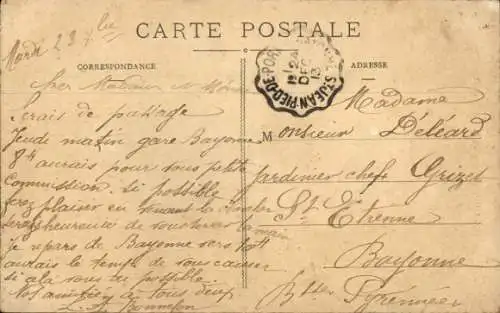 CARTE POSTALE
CORRESPONDANCE
ADRESSE
Mardi 23 Xbre
Cher Monsieur et Mme
Serais de passage
Jeudi matin gare Bayonne
8h aurais pour vous petite
commission, si possible
ferez plaisir en venant la chercher
serais heureuse de vous serrer la main
Je repars de Bayonne vers
aurais le temps de vous causer
si cela vous est possible.
Nos amitiés à tous deux
Madame
Monsieur Déléard
jardinier chef Grizet
St Etienne
Bayonne
Btes Pyrénées
ST-JEAN-PIED-DE-PORT
24
DEC
13